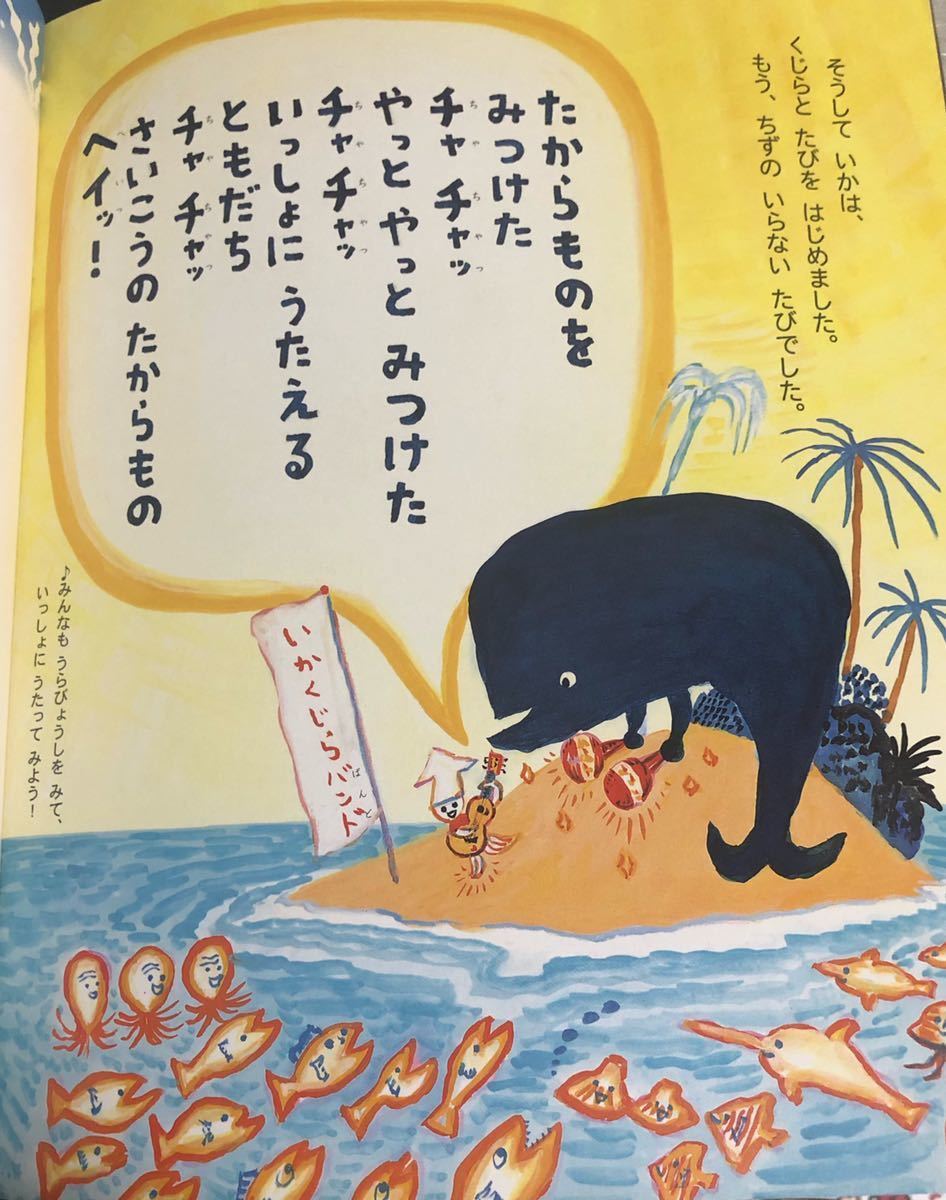 そうして いかは、
くじらと たびを はじめました。
もう、ちずの いらない たびでした。
たからものを
みつけた
チャ チャッ
やっと やっと みつけた
チャ チャッ
いっしょに うたえる
ともだち
チャ チャッ
さいこうの たからもの
ヘイッ!
いかくじらバンド
♪みんなも うらびょうしを みて、
いっしょに うたって みよう!